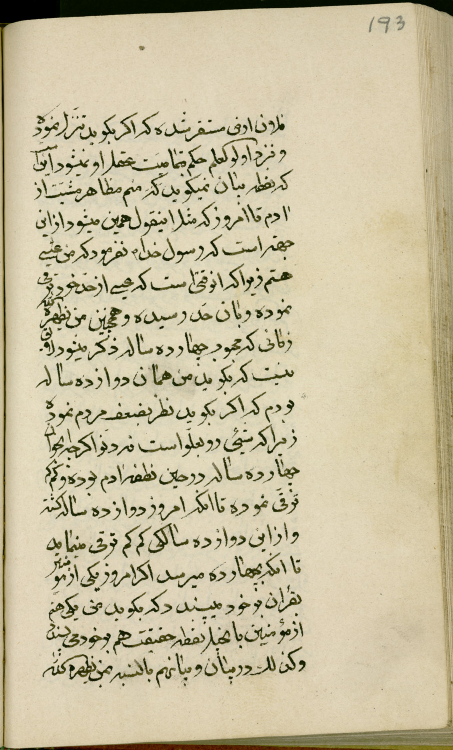 193
فلان افق مستقر شده که اگر بگوید تنزل نموده
و نزد اولو العلم حکم تمامیت عقل او نمیشود
که نقطه بیان نمیگوید که منم مظاهر مشیت از
آدم تا امروز که مثل این قول همین میشود از این
جهة است که رسول خدا نفرمود که من عیسی
هستم زیرا که آن وقتی است که عیسی از حد خود ترقی
نموده و بآن حد رسیده و همچنین من یظهره الله
زمانی که محبوب چهارده ساله ذکر میشود لایق
نیست که بگوید من همان دوازده ساله
بودم که اگر بگوید نظر بضعف مردم نموده
زیرا که شیئی رو بعلو است نه دنو اگرچه آن جوان
چهارده ساله در حین نطفه آدم بوده و کم کم
ترقی نموده تا آنکه امروز دوازده ساله گشته
و از این دوازده سالگی کم کم ترقی مینماید
تا آنکه بچهارده میرسد اگر امروز یکی از مؤمنین
بقرآن بر خود میپسندد که بگوید من یکی هم
از مؤمنین بانجیل نقطه حقیقت هم بر خود می پسندد
و کذلک در بیان و بیانهم بالنسبه بمن یظهره الله